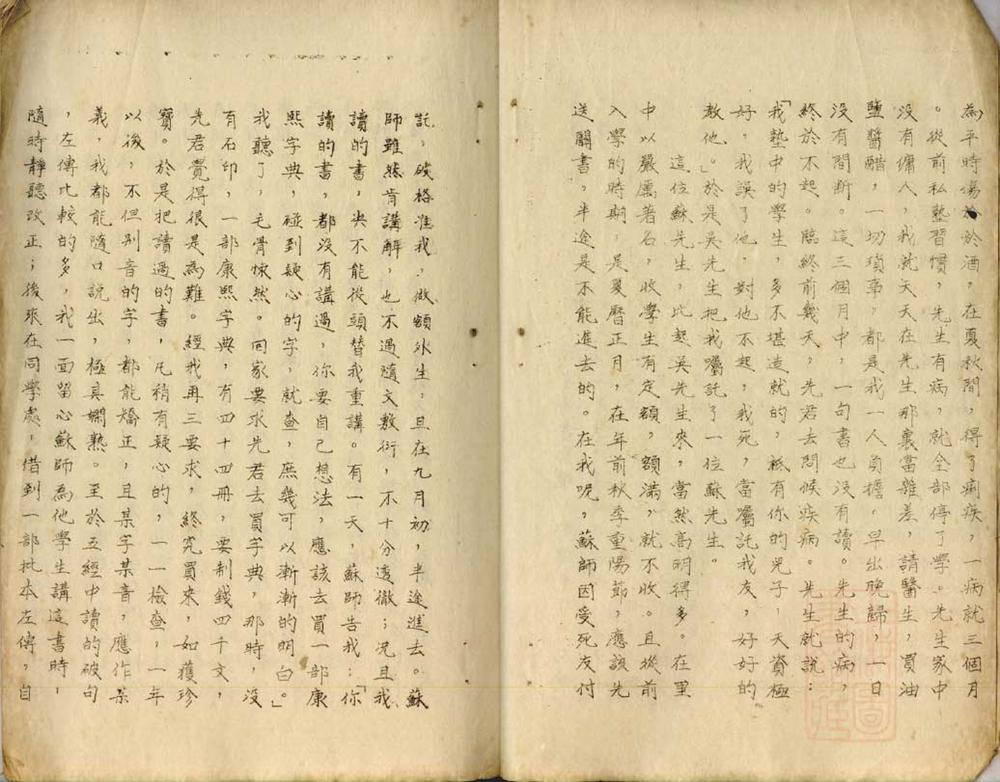 為平時傷於酒，在夏秋間，得了痢疾，一病就三個月
。從前私塾習慣，先生有病，就全部停了學。先生家中
沒有傭人，我就天天在先生那裏當雜差，請醫生，買油
鹽醬醋，一切瑣事，都是我一人負擔。早出晚歸，一日
沒有間斷。這三個月中，一句書也沒有讀。先生的病，
終於不起。臨終前幾天，先君去問候疾病。先生就說：
「我塾中的學生，多不堪造就的，祇有你的兒子，天資極
好，我誤了他，對他不起，我死，當囑託我友，好好的
教他。」於是吳先生把我囑託了一位蘇先生。
這位蘇先生，比起吳先生來，當然高明得多。在里
中以嚴厲著名，收學生有定額，額滿，就不收。且從前
入學的時期，是夏曆正月，在年前秋季重陽節，應該先
送關書，半途是不能進去的。在我呢，蘇師因受死友付
託，破格准我，做額外生，且在九月初，半途進去。蘇
師雖然肯講解，也不過隨文敷衍，不十分透徹；況且我
讀的書，決不能從頭替我重講。有一天，蘇師告我：「你
讀的書，都沒有講過，你要自己想法，應該去買一部康
熙字典，碰到疑心的字，就查，庶幾可以漸漸的明白。」
我聽了，毛骨悚然。回家要求先君去買字典，那時，沒
有石印，一部康熙字典，有四十四冊，要制錢四千文，
先君覺得很是為難。經我再三要求，終究買來，如獲珍
寶。於是把讀過的書，凡稍有疑心的，一一檢查，一年
以後，不但別音的字，都能矯正，且某字某音，應作某
義，我都能隨口說出，極其嫻熟。至於五經中讀的破句
，左傳比較的多，我一面留心蘇師為他學生講這書時，
隨時靜聽改正；後來在同學處，借到一部批本左傳，自